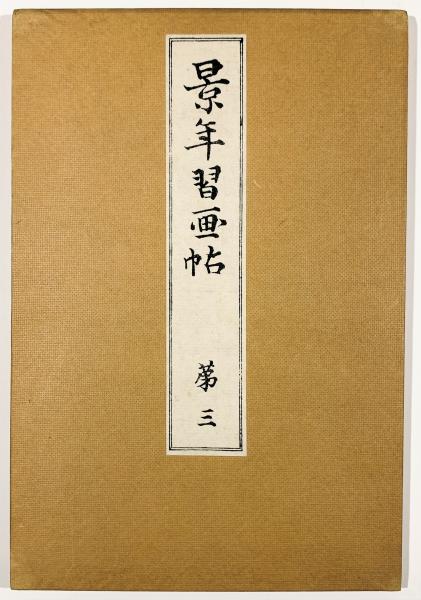 景年習画帖
第三